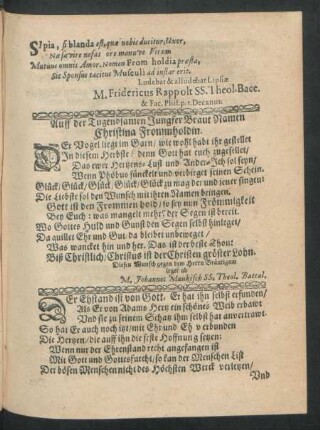 SI pia, si blanda est, quæ nobis ducitur, Uxor,
Mutuus omnis Amor. Nomen From holdia præsta,
Sic Sponsus tacitus Musculi ad instar erit.
Ludebat & alludebat Lipsiæ
M. Fridericus Rappolt SS. Theol. Bacc.
& Fac. Phil. p. t. Decanus.
Auff der Tugendsamen Jungfer Braut Namen
Christina Frommholdin.
DEr Vogel liegt im Garn / wie wohl habt ihr gestellet
In diesem Herbste / denn Gott hat euch zugesellet /
Das ewer Hertzens-Lust und Ander-Ich sol seyn /
Wenn Phöbus fünckelt und verbirget seinen Schein.
Glück / Glück / Glück / Glück / Glück zu mag der und jener singen:
Die Liebste sol den Wunsch mit ihrem Namen bringen.
Gott ist den Frommen hold / so sey nun Frömmigkeit
Bey Euch: was mangelt mehr? der Segen ist bereit.
Wo Gottes Huld und Gunst den Segen selbst hinleget /
Da quillet Ehr und Gut da bleibet unbeweget /
Was wancket hin und her. Das ist der beste Thon:
Biß Christlich / Christus ist der Christen grösster Lohn.
Diesen Wunsch gegen dem Herrn Bräutigam
legte ab
M. Johannes Maukisch SS. Theol. Baccal.
DEr Ehstand ist von Gott. Er hat ihn selbst erfunden /
Als Er von Adams Hertz ein schönes Weib erbawt
Und sie zu seinem Schatz ihm selbst hat anvertrawt.
So hat Er auch noch itzt / mit Ehr und Eh verbunden
Die Hertzen / die auff ihn die feste Hoffnung setzen:
Wenn nur der Ehrenstand recht angefangen ist
Mit Gott und Gottesfurcht / so kan der Menschen List
Der bösen Menschen nicht des Höchsten Werck verletzen /
Und